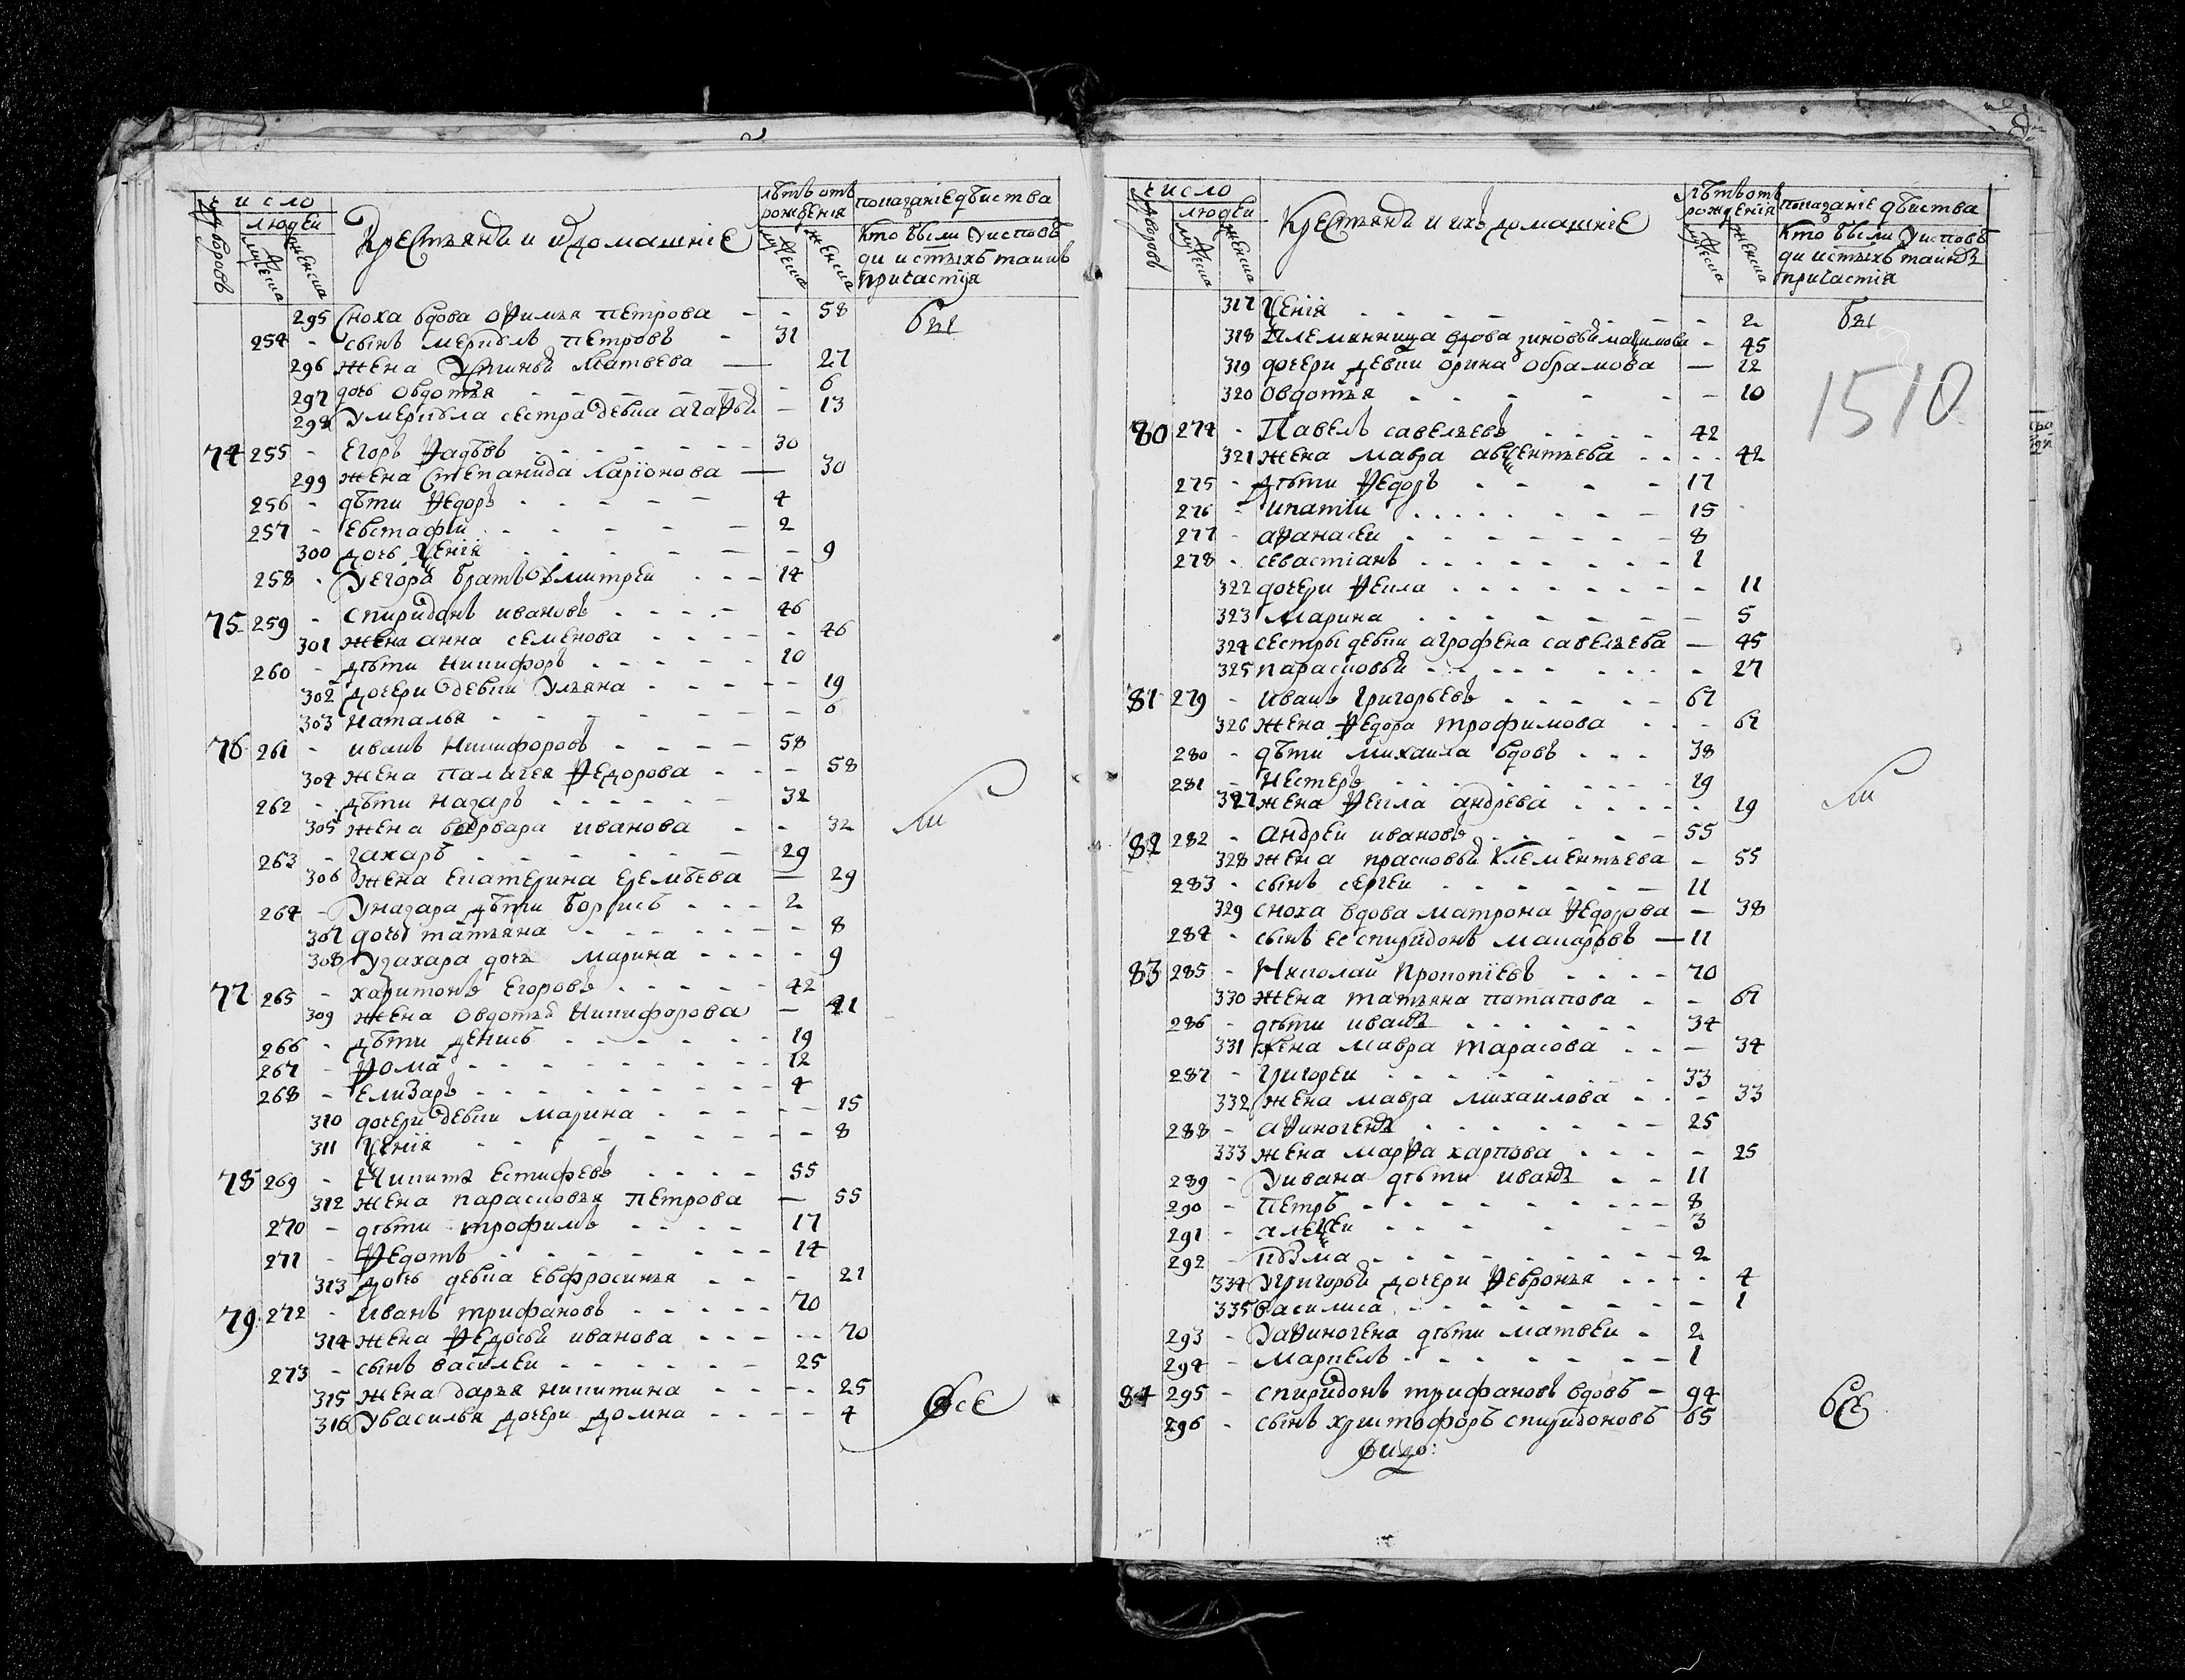 число
людеи
дворовъ
мужеска
женска
Крестьянъ и ихъ домашнiе
лѣтъ отъ
рожденiя
мужеска
женска
показанiе дѣиства
кто были у исповѣ
ди и стыхъ таинъ
причастiя
295 сноха вдова офимья петрова - - 58 бы
254 - сынъ меркулъ петровъ - 31
296 жена матвеева — 27
297 дочь овдотья - 6
298 у меркула сестра девка агафья - 13
74 255 - Егоръ фадѣевъ - 30
299 жена степанида ларiонова — 30
256 - дѣти ѳедоръ - 4
257 - евстафiи - 2
300 дочь ѯенiя - 9
258 - у егора братъ дмитреи - 14
75 259 - спиридонъ ивановъ - 46
301 жена анна семенова - 46
260 - дѣти никифоръ - 10
302 дочери девки ульяна - 19
303 наталья - 6
76 261 - иванъ никифоровъ - 58
304 жена палагея ѳедорова - 58
262 - дѣти назаръ - 32
305 жена варвара иванова - 32 ли
263 - захаръ - 29
306 жена екатерина еремѣева — 29
264 - у назара дѣти борисъ - 2
307 дочь татьяна - 8
308 у захара дочь марина - 9
77 265 - харитонъ егоровъ - 42
309 жена овдотья никифорова — 41
266 - дѣти денисъ - 19
267 - ѳома - 12
268 - елизаръ - 4
310 дочери девки марина - 15
311 ѯенiя - 8
78 269 - Никита естифѣевъ - 55
312 жена парасковья петрова — 55
270 - дѣти трофимъ - 17
271 - ѳедотъ - 14
313 дочь девка евфросинья - 21
79 272 - иванъ трифановъ - 70
314 жена ѳедосья иванова - 70
273 - сынъ василеи - 25
315 жена дарья никитина - 25
316 у василья дочери домна - 4 все
число
людеи
дворовъ
мужеска
женска
Крестьянъ и ихъ домашнiе
лѣтъ отъ
рожденiя
мужеска
женска
показанiе дѣиства
кто были у исповѣ
ди и стыхъ таинъ
причастiя
317 ѯенiя - 2 бы
318 племянница вдова зиновья маѯимова - 45
319 дочери девки орина обрамова — 12
320 овдотья - 10
1510
80 274 - Павелъ савельевъ - 42
321 жена мавра авѯентьева - 42
275 - дѣти ѳедоръ - 17
276 - ипатiи - 15
277 - аѳанасеи - 8
278 - севастiанъ - 1
322 дочери ѳекла - 11
323 марина - 5
324 сестры девки агрофена савельева — 45
325 парасковья - 27
81 279 - Иванъ григорьевъ - 67
326 жена ѳедора трофимова - 67
280 - дѣти михаила вдовъ - 38
281 - нестеръ - 19
327 жена ѳекла андрева - 19 ли
82 282 - андреи ивановъ - 55
328 жена прасковья клементьева - 55
283 - сынъ сергеи - 11
329 сноха вдова матрона ѳедорова — 38
284 - сынъ ее спиридонъ макаровъ — 11
83 285 - Николаи прокопiевъ - 70
330 жена татьяна потапова - 67
286 - дѣти иванъ - 34
331 жена мавра тарасова - 34
287 - григореи - 33
332 жена мавра михаилова - 33
288 - аѳиногенъ - 25
333 жена марѳа харпова - 25
289 - у ивана дѣти иванъ - 11
290 - петръ - 8
291 - алеѯеи - 3
292 - кузма - 2
334 у григорья дочери ѳевронья - 4
335 василиса - 1
293 - у аѳиногена дѣти матвеи - 2
294 - маркелъ - 1
84 295 - спиридонъ трифановъ вдовъ - 94
296 - сынъ христофоръ спиридоновъ 65 все